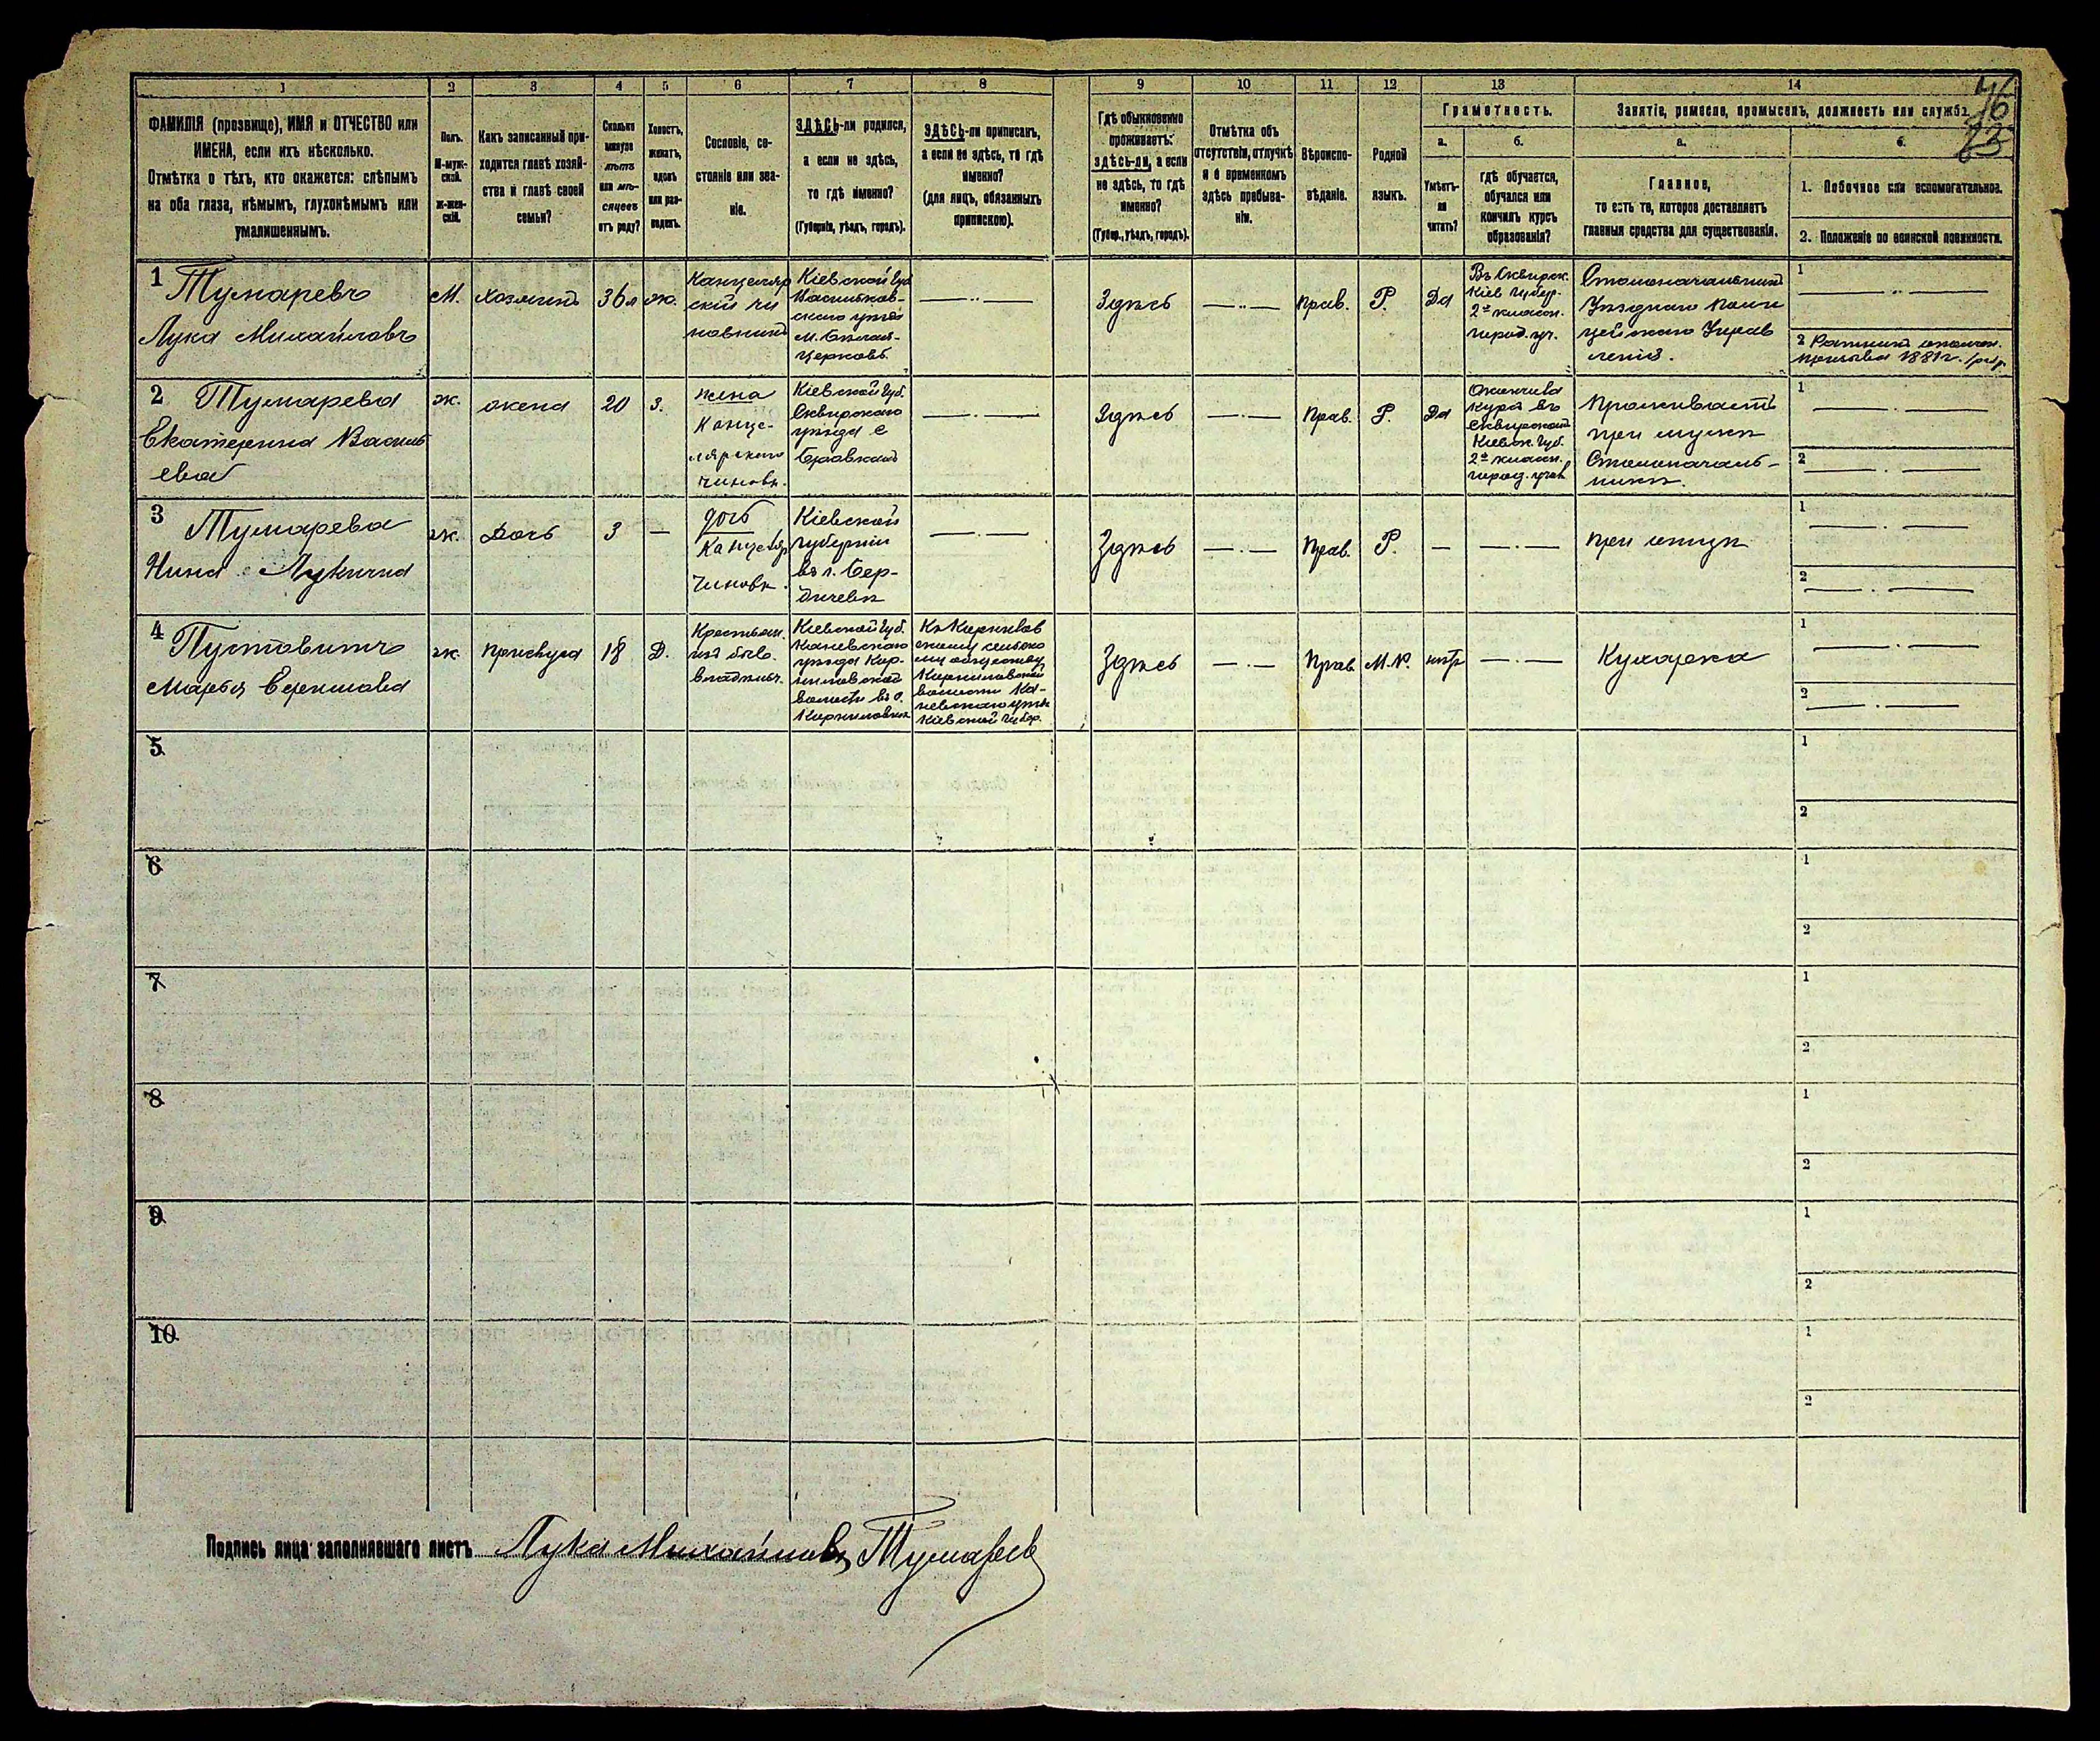 1 2 3 4 5 6 7 8 9 10 11 12 13 14
46
23
ФАМИЛІЯ (прозвище), ИМЯ и ОТЧЕСТВО или
ИМЕНА, если ихъ нѣсколько.
Отмѣтка о тѣхъ, кто окажется: слѣпымъ
на оба глаза, нѣмымъ, глухонѣмымъ или
умалишеннымъ.
Полъ.
М-муж-
ской.
ж-жен-
скій.
Какъ записанный при-
ходится главѣ хозяй-
ства и главѣ своей
семьи?
Сколько
минуло
лѣтъ
или мѣ-
сяцевъ
отъ роду?
Холостъ,
женатъ,
вдовъ
или раз-
веденъ.
Сословіе, со-
стояніе или зва-
ніе.
ЗДѢСЬ-ли родился,
а если не здѣсь,
то гдѣ именно?
(Губернія, уѣздъ, городъ).
ЗДѢСЬ-ли приписанъ,
а если не здѣсь, то гдѣ
именно?
(для лицъ, обязанныхъ
припискою).
Гдѣ обыкновенно
проживаетъ:
здѣсь-ли, а если
не здѣсь, то гдѣ
именно?
(Губер., уѣздъ, городъ).
Отмѣтка объ
отсутствіи, отлучкѣ
и о временномъ
здѣсь пребыва-
ніи.
Вѣроиспо-
вѣданіе.
Родной
языкъ.
Грамотность.
а.
Умѣетъ-
ли
читать?
б.
гдѣ обучается,
обучался или
кончилъ курсъ
образованія?
Занятіе, ремесло, промыселъ, должность или служба.
а.
Главное,
то есть то, которое доставляетъ
главныя средства для существованія.
б.
1. Побочное или вспомогательное.
2. Положеніе по воинской повинности.
1
Тумаревъ
Лука Михайловъ
М.
хозяинъ
36 л
ж.
Канцеляр
скій чи
новникъ
Кіевской Губ
Васильков-
скаго уѣзда
м. Бѣлая-
Церковь.
Здѣсь
прав.
Р.
Да
Въ Сквирск.
Кіев губер.
2х класcн.
город. уч.
Столоначальникъ
Уѣзднаго Поли
цейскаго Управ
ленія.
1
2 Ратникъ ополчен.
призыва 1881 г.
2
Тумарева
Екатерина Василь
ева
ж.
жена
20
з.
жена
Канце-
лярскаго
чиновн.
Кіевской Губ.
Сквирскаго
уѣзда с
Здѣсь
Прав.
Р.
Да
Окончила
курсъ въ
Сквирской
Кіевск. Губ.
2х классн.
город. учил
Проживаетъ
при мужѣ
Столоначаль-
никѣ.
1
2
3
Тумарева
Нина Лукична
ж.
Дочь
3
дочь
Канцеляр
Чиновн.
Кіевской
губерніи
въ г. Бер-
дичевѣ
Здѣсь
Прав.
Р.
при отцѣ
1
2
4
Пустовитъ
Марья
ж.
прислуга
18
Д.
Крестьян.
изъ быв.
владѣльч.
Кіевской Губ.
Каневскаго
уѣзда Кор-
ниловской
волости въ с.
Корниловкѣ
Къ Корнилов
скому сельско
му обществу
Корниловской
волости Ка-
невскаго уѣзд
Кіевской Губер.
Здѣсь
Прав
М.Р.
нѣтъ
Кухарка
1
2
5
1
2
6
1
2
7
1
2
8
1
2
9
1
2
10
1
2
Подпись лица заполнявшаго листъ Лука Михайловъ Тумаревъ